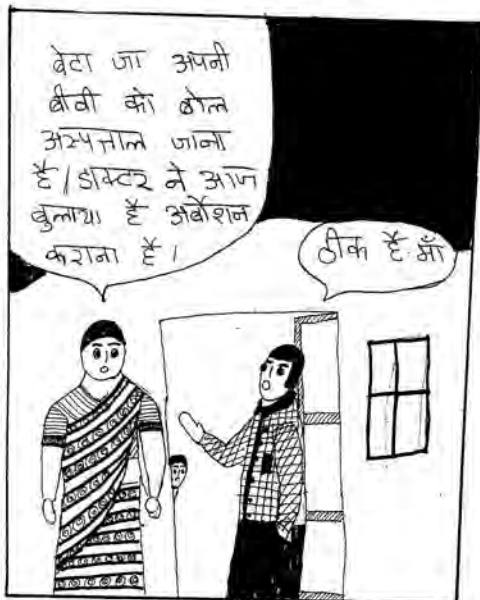 बेटा जा अपनी
बीवी को बोल
अस्पताल जाना
है। डाक्टर ने आज
बुलाया है अर्बोशन
कराना है।
ठीक है माँ